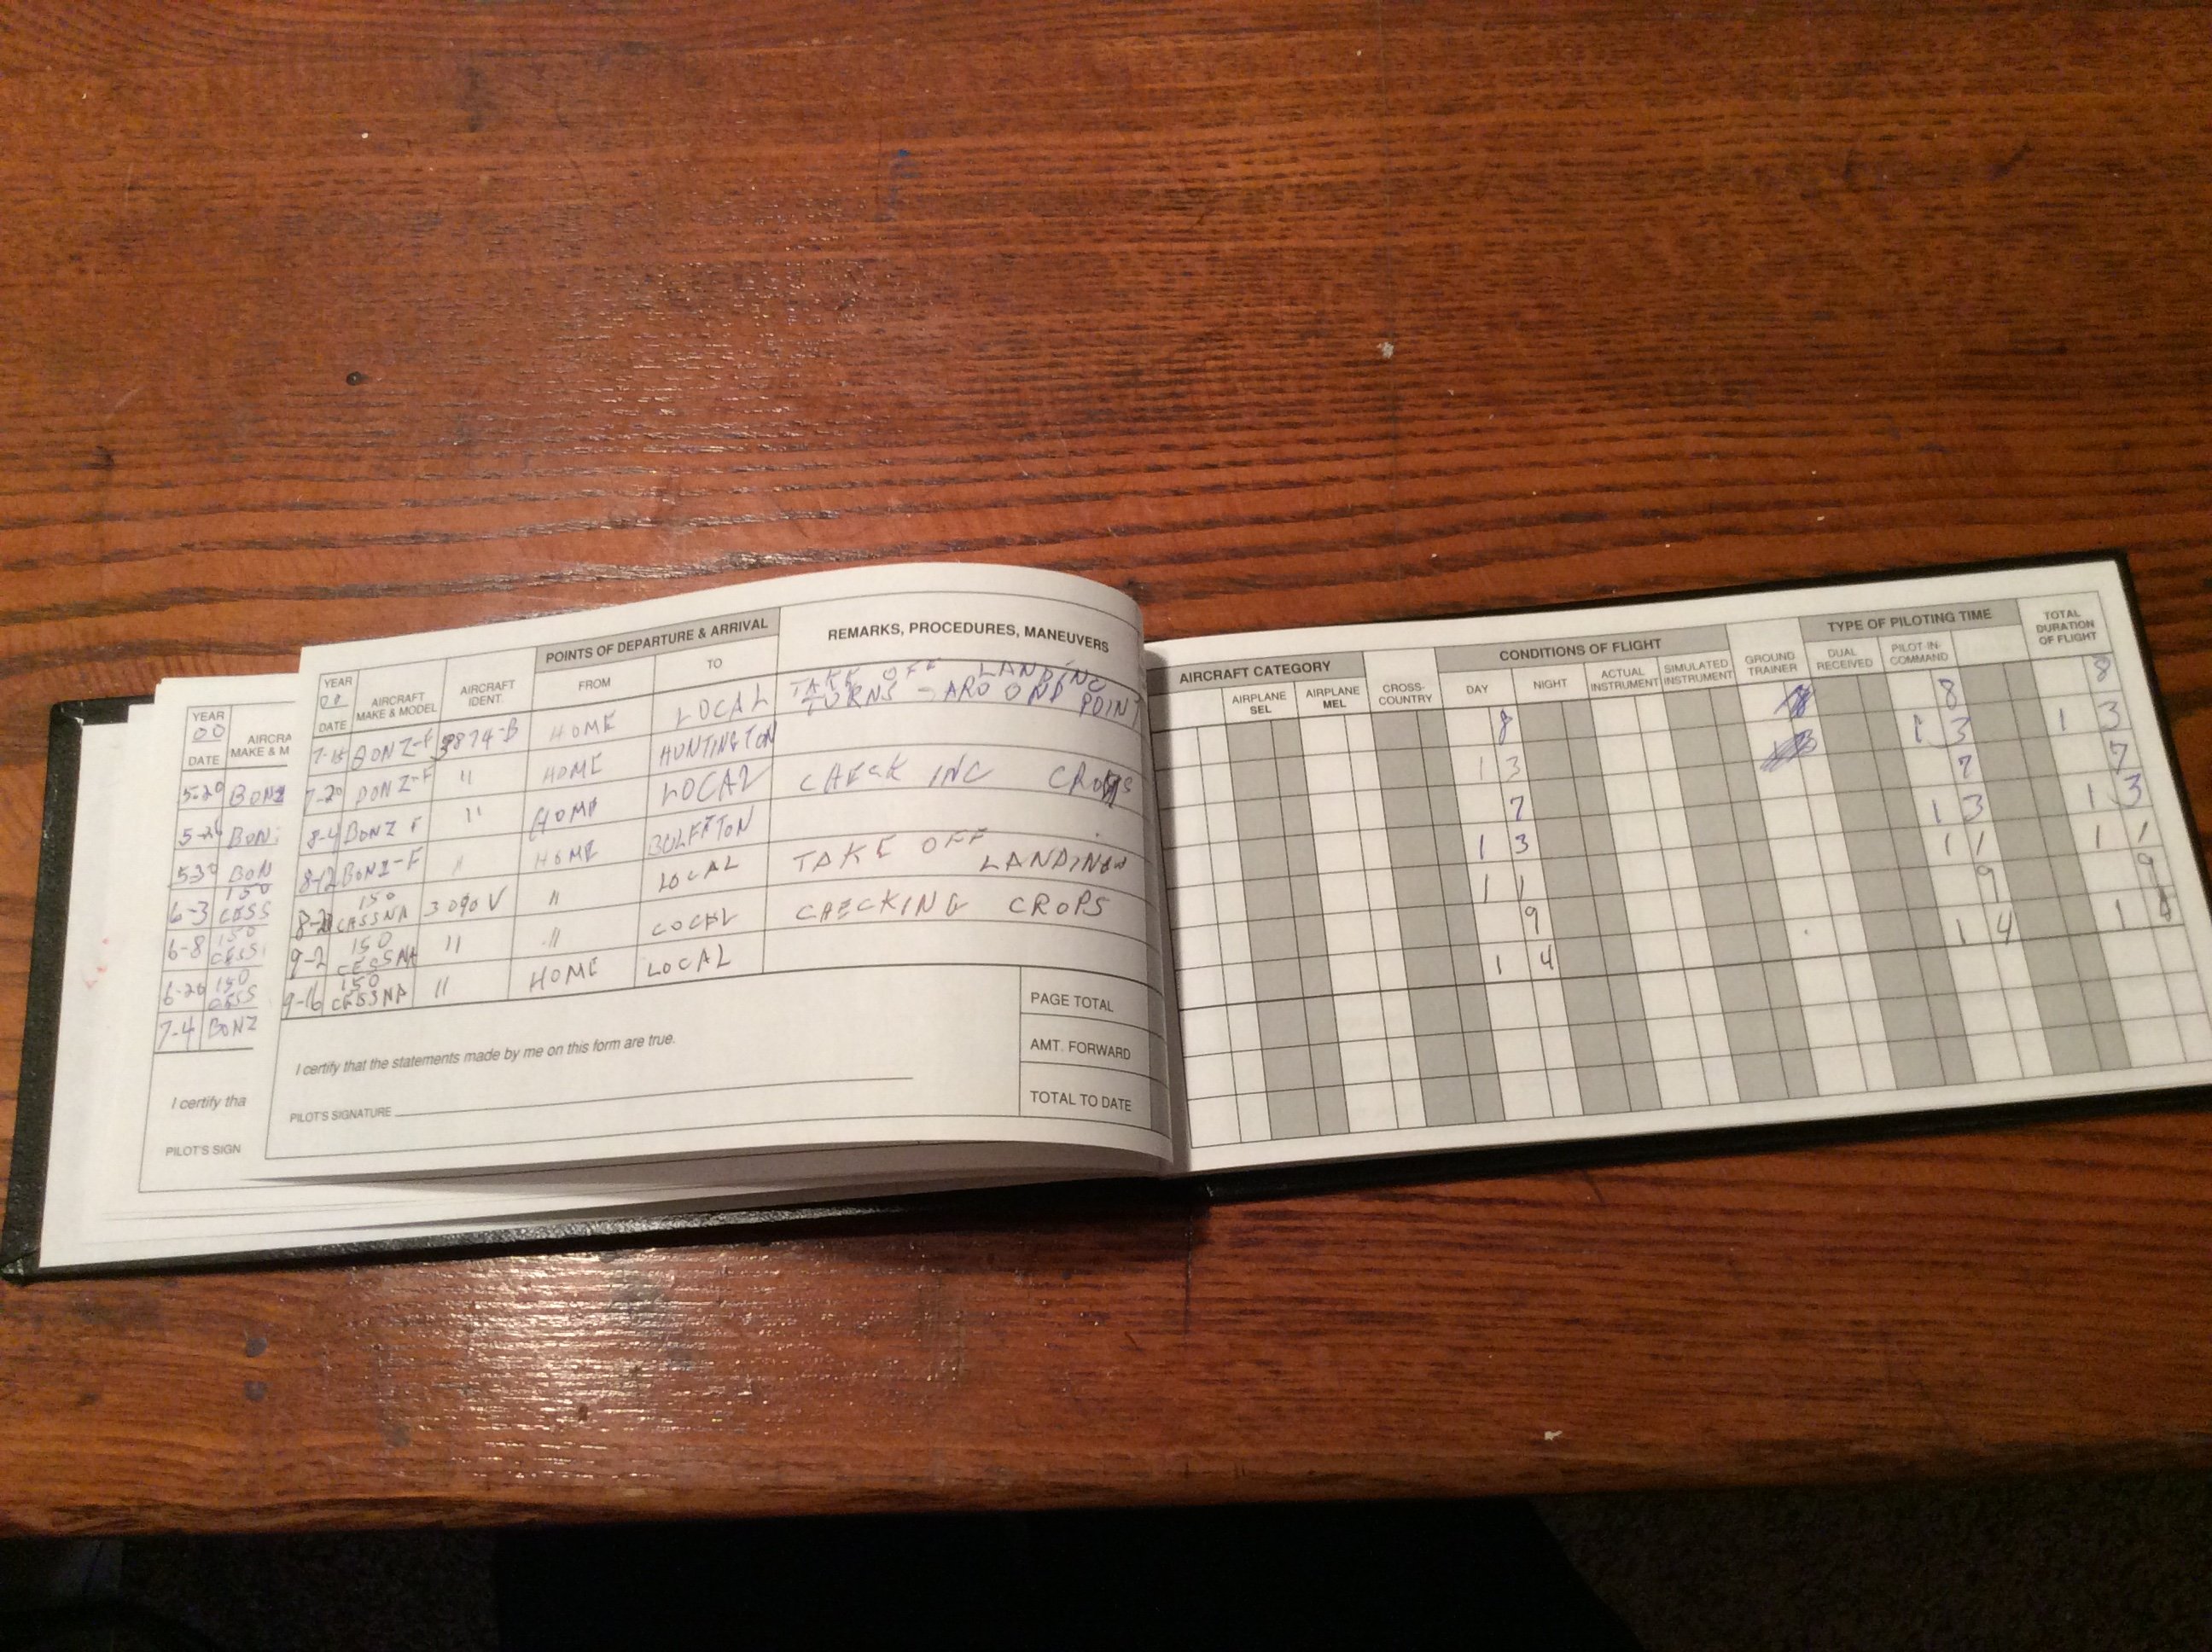 YEAR
00
DATE
AIRCRA
MAKE & M
5-20 BONZ
5-26 BON
5-30 BON
6-3 150 CESS
6-8 150 CESS
6-20 150 CESS
7-4 BONZ
I certify tha
PILOT'S SIGN
YEAR
DATE
AIRCRAFT
MAKE & MODEL
AIRCRAFT
IDENT.
POINTS OF DEPARTURE & ARRIVAL
FROM
TO
REMARKS, PROCEDURES, MANEUVERS
7-15 BONZ-F 3874-B HOME LOCAL TAKE OFF LANDING
TURNS - AROUND POINT
7-20 BONZ-F " HOME HUNTINGTON
8-4 BONZ F " HOME LOCAL CHECK ING CROPS
8-12 BONZ-F " HOME
150
CESSNA 3090 V " LOCAL TAKE OFF
LANDING
9-2 150
CESSNA " " LOCAL CHECKING CROPS
9-16 150
CESSNA " HOME LOCAL
I certify that the statements made by me on this form are true.
PILOT'S SIGNATURE
PAGE TOTAL
AMT. FORWARD
TOTAL TO DATE
AIRCRAFT CATEGORY
AIRPLANE
SEL
AIRPLANE
MEL
CROSS-
COUNTRY
CONDITIONS OF FLIGHT
DAY
NIGHT
ACTUAL
INSTRUMENT
SIMULATED
INSTRUMENT
GROUND
TRAINER
TYPE OF PILOTING TIME
DUAL
RECEIVED
PILOT-IN-
COMMAND
TOTAL
DURATION
OF FLIGHT
8 8 8
1 3 1 3 1 3
7 7 7
1 3 1 3 1 3
1 1 1 1 1 1
9 9 9
1 4 1 4 1